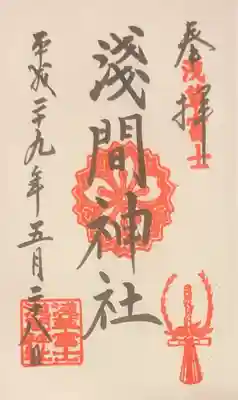 奉拝
浅間神社
平成二十九年五月二十八日